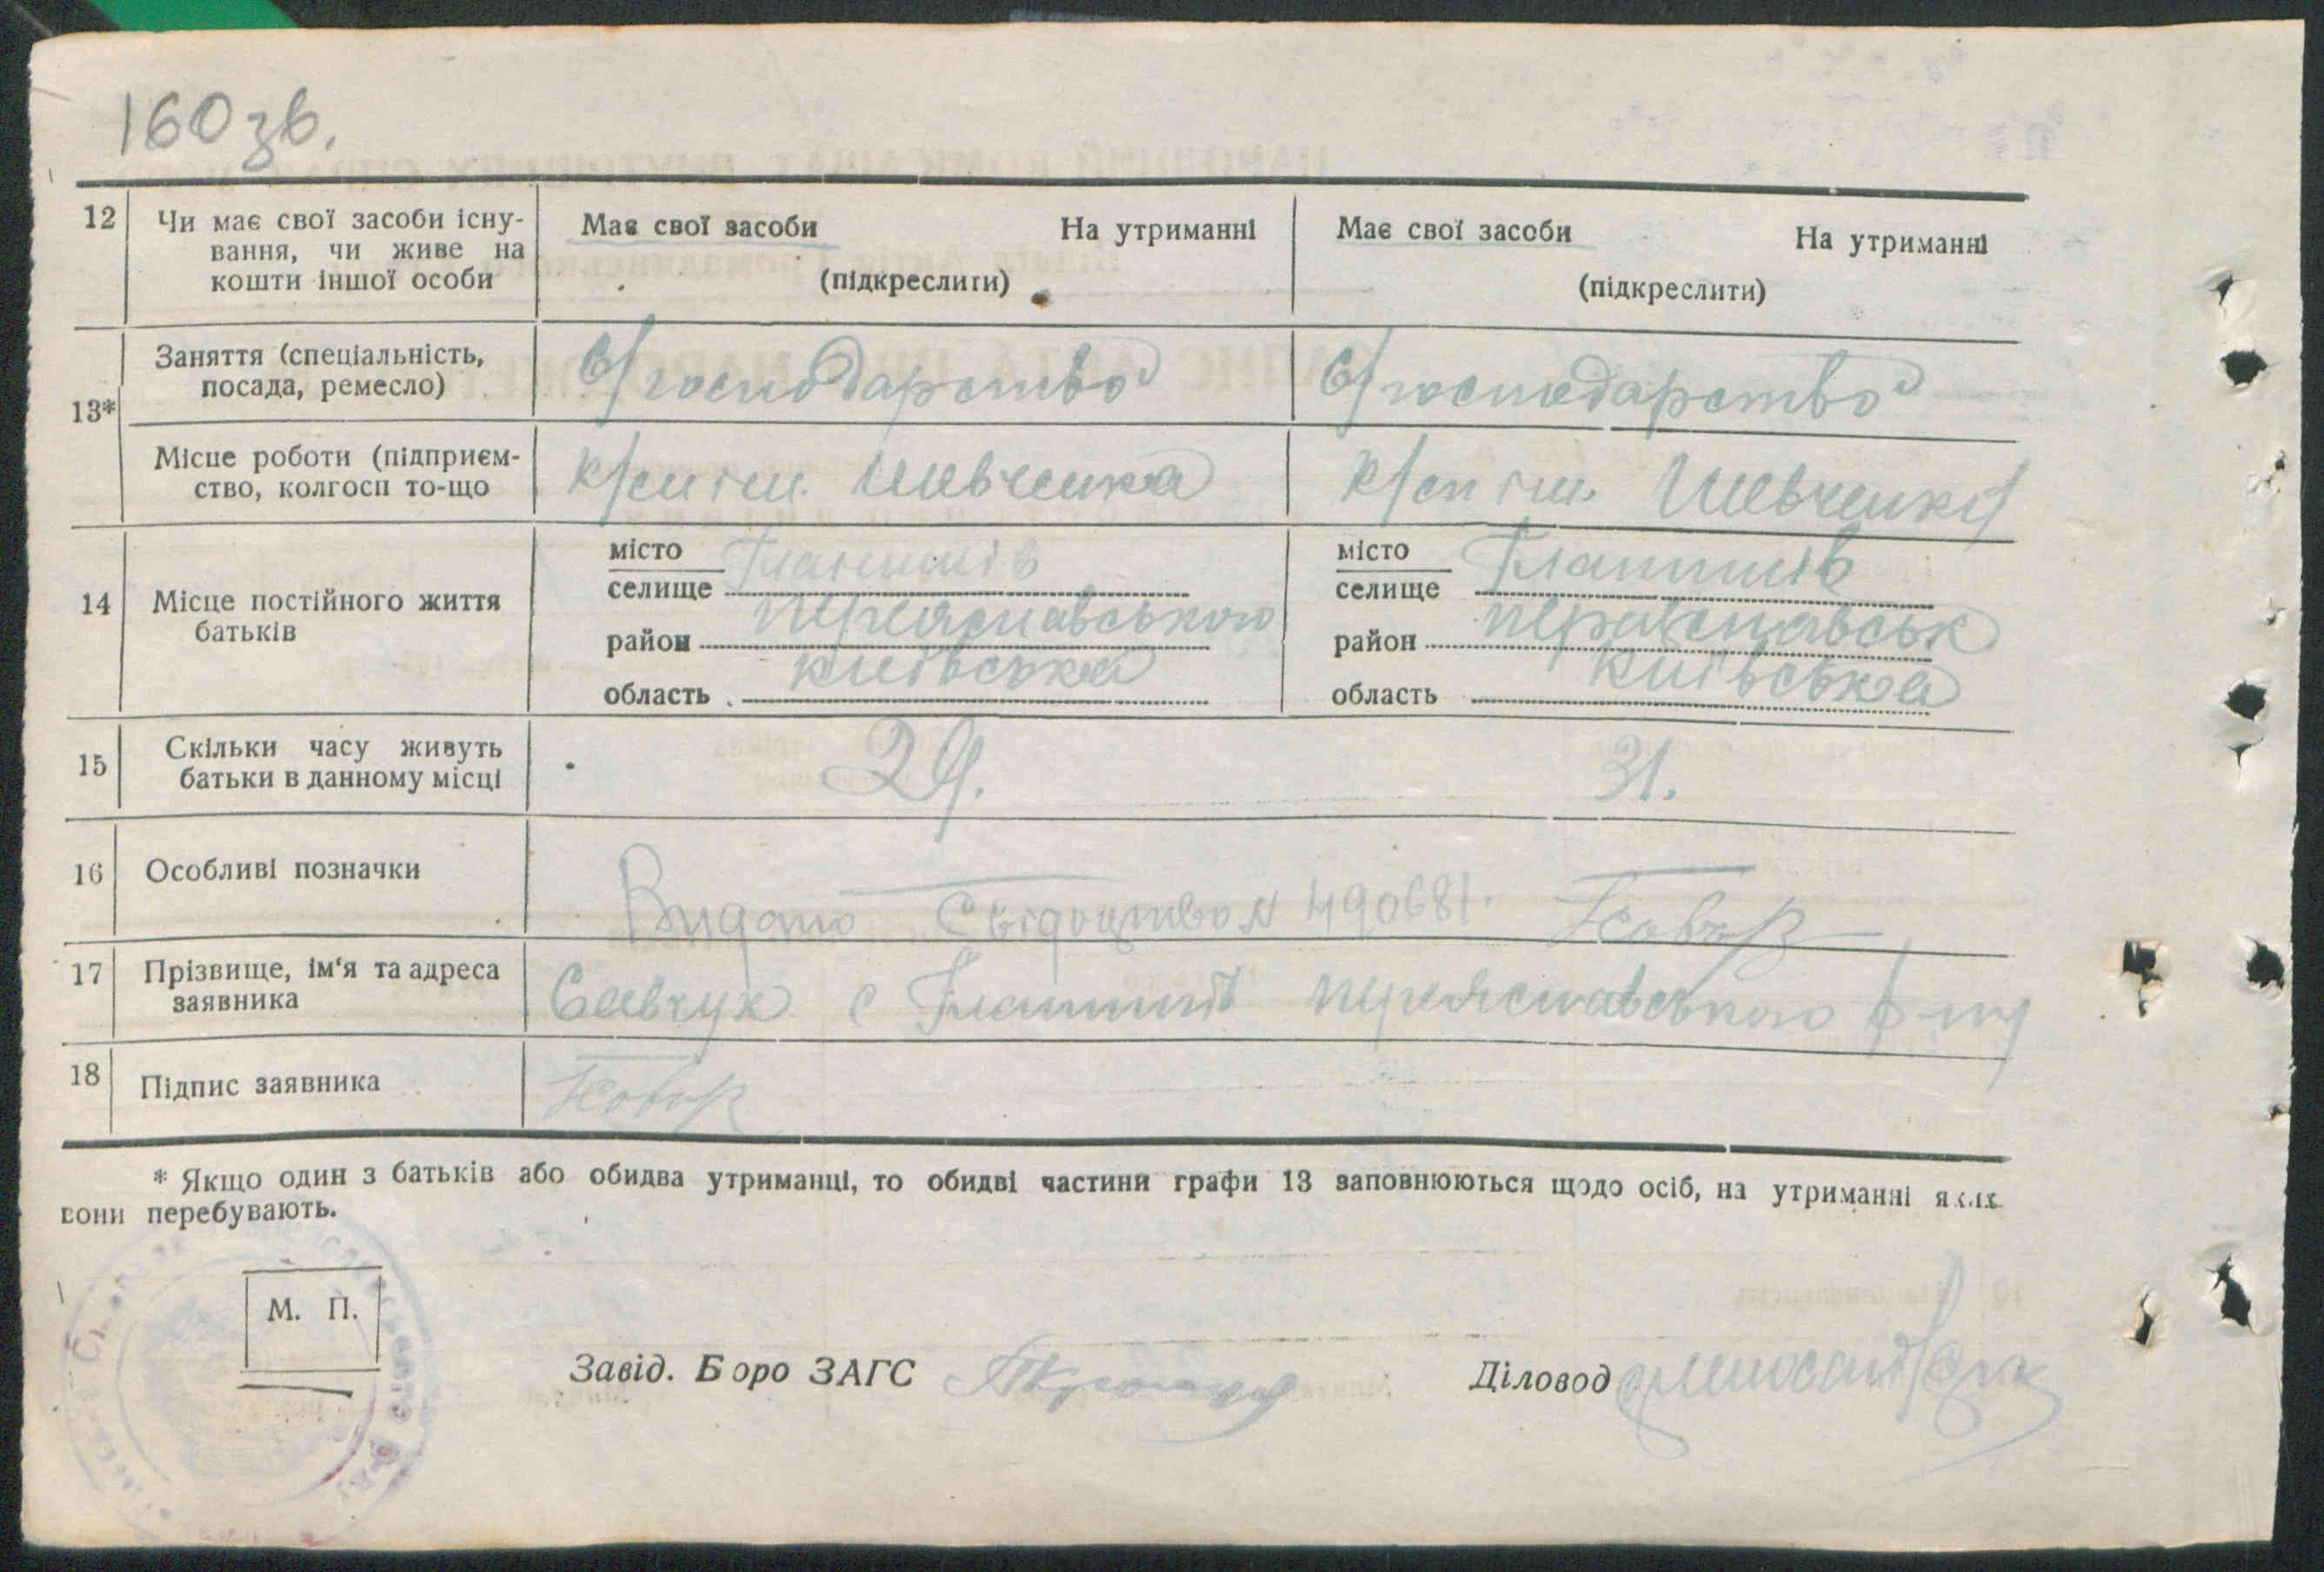 160 зв.
12 Чи має свої засоби існу-
вання, чи живе на
кошти іншої особи
Має свої засоби На утриманні
(підкреслити)
Має свої засоби На утриманні
(підкреслити)
13*
Заняття (спеціальність,
посада, ремесло)
С/господарство
С/господарство
Місце роботи (підприєм-
ство, колгосп то-що
к/сп ім. Шевченка
к/сп ім. Шевченка
14 Місце постійного життя
батьків
місто
селище
район Переяславського
область київська
місто
селище
район
область київська
15 Скільки часу живуть
батьки в данному місці
29.
31.
16 Особливі позначки
Видано Свідоцтво N 490681.
17 Прізвище, ім'я та адреса
заявника
Савчук с Переяславського р-ну
18 Підпис заявника
* Якщо один з батьків або обидва утриманці, то обидві частини графи 13 заповнюються щодо осіб, на утриманні яких
вони перебувають.
М. П.
Завід. Бюро ЗАГС
Діловод